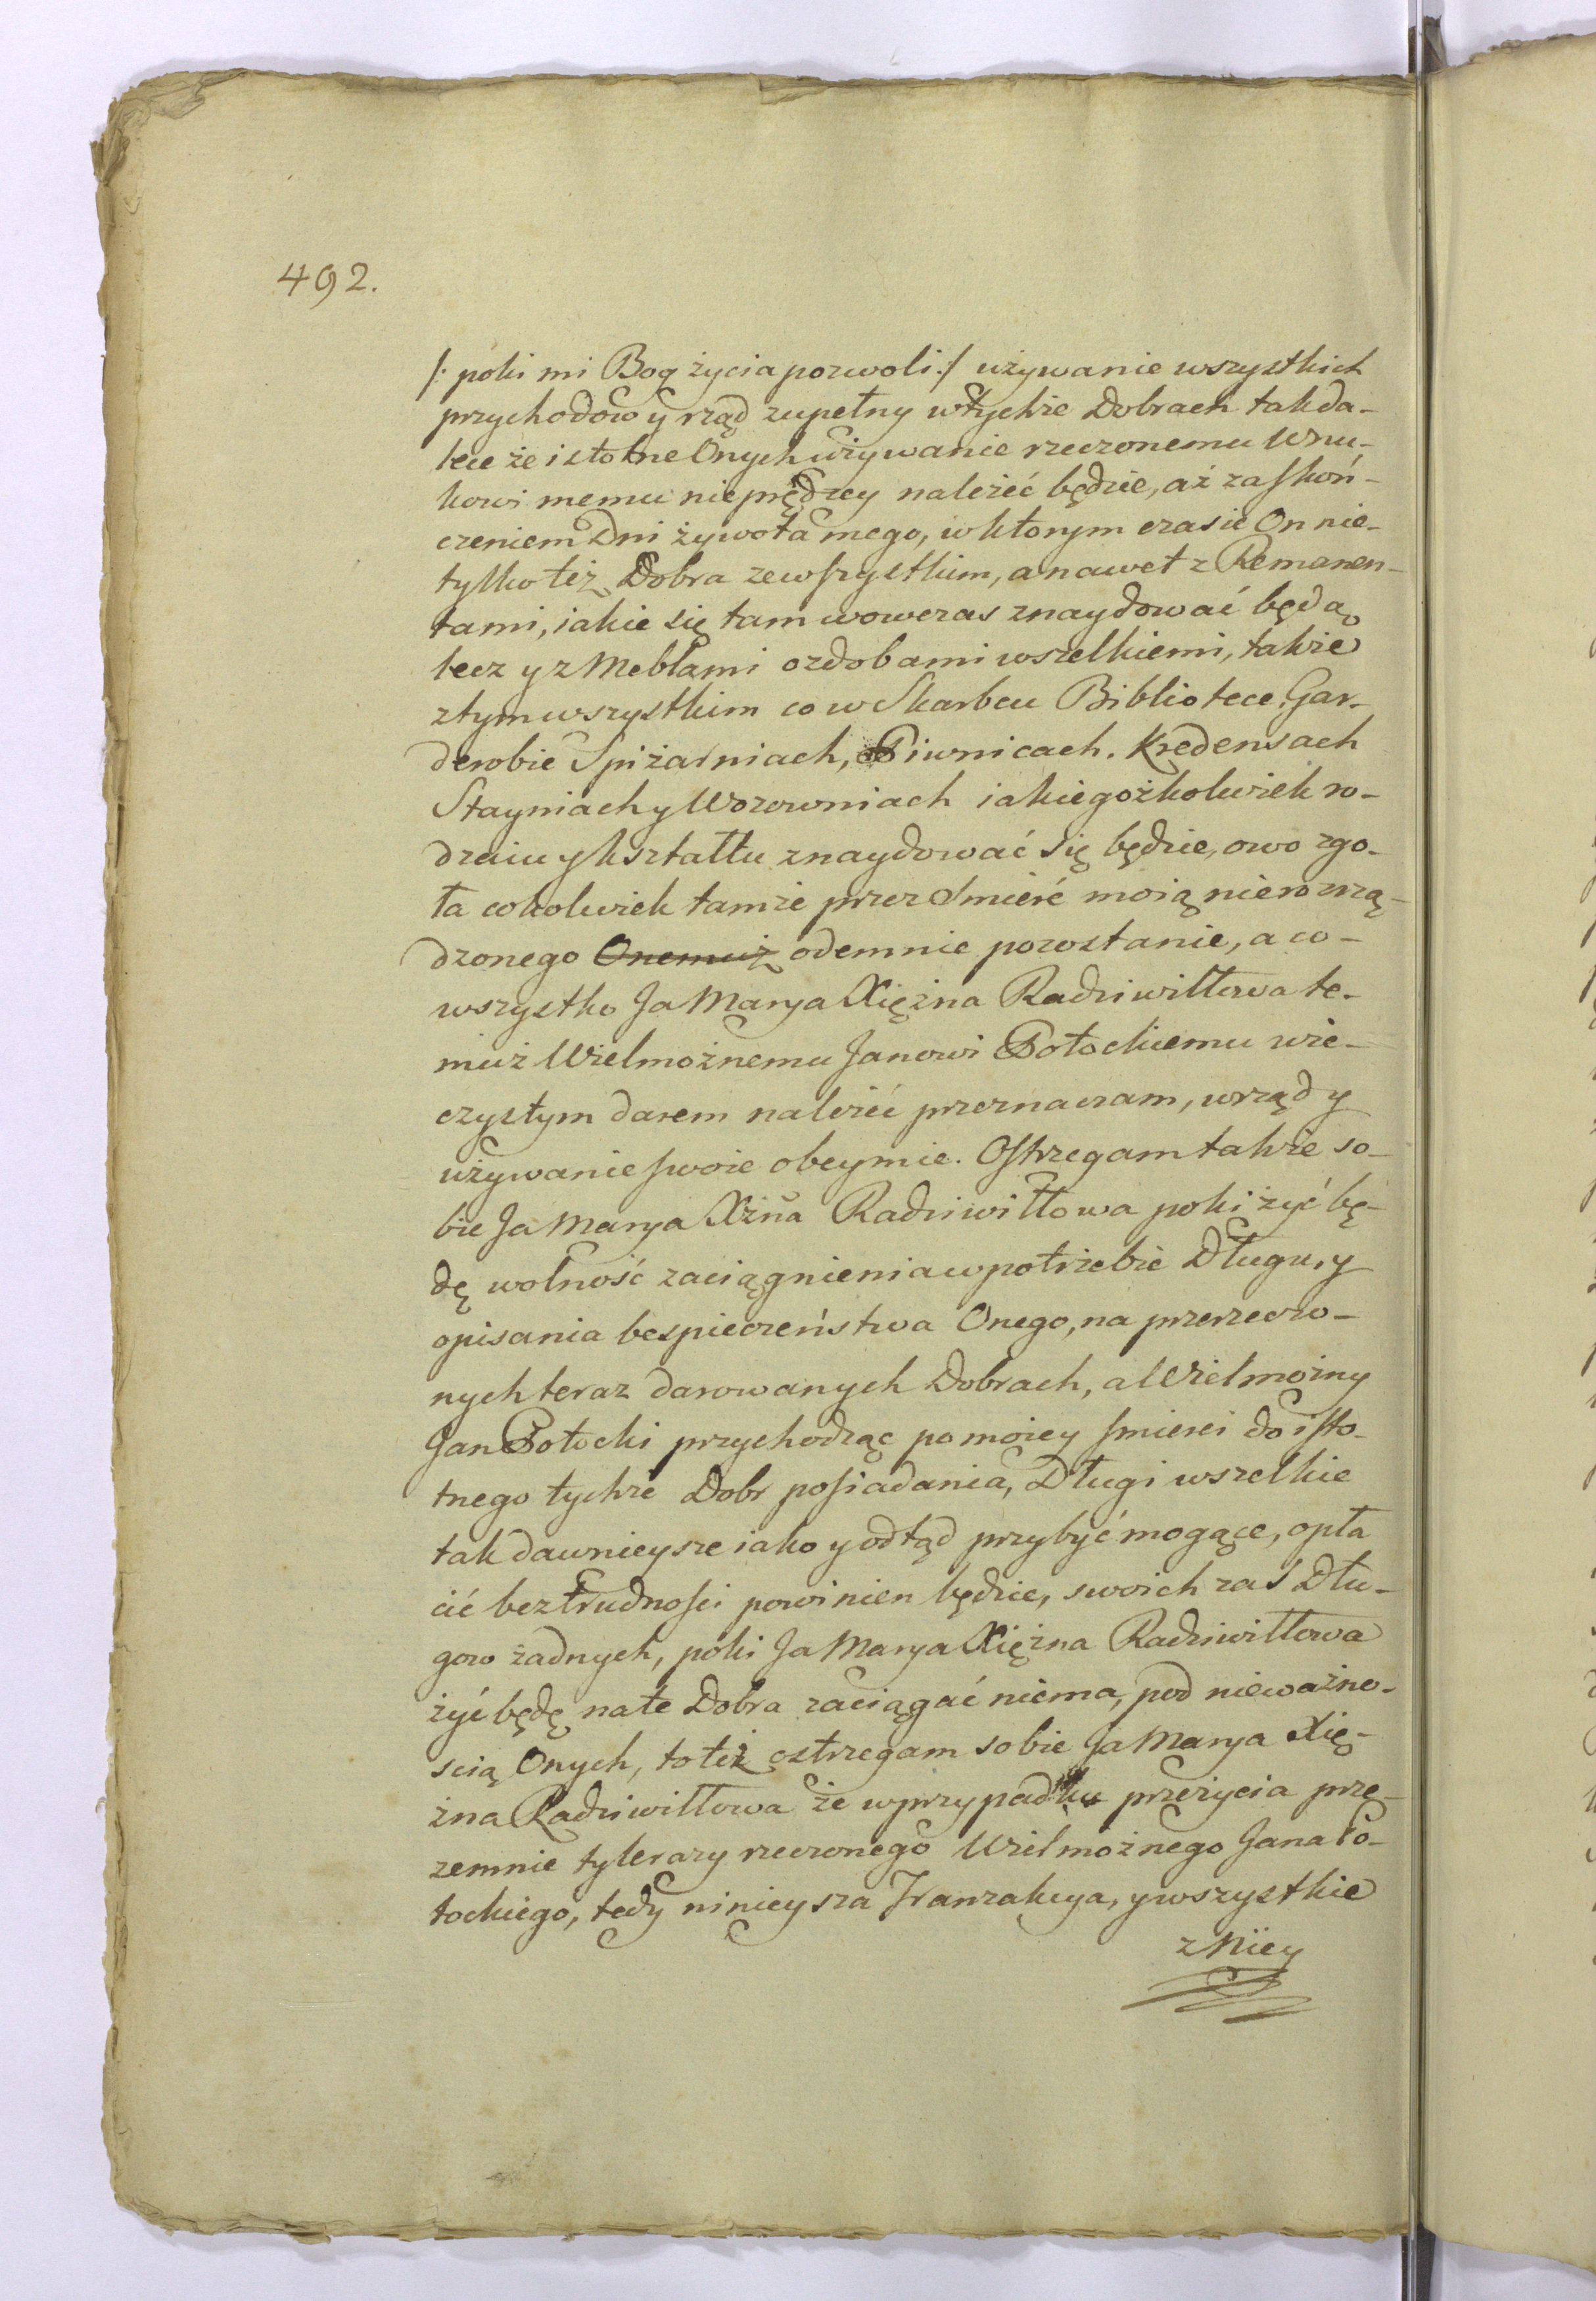 492.
/: poki mi Bog życia pozwoli :/ używanie wszystkich
przychodow y rząd zupełny w tychże Dobrach tak da-
lece że istotne Onych używanie rzeczonemu Wnu-
kowi memu nieprędzey należeć będzie, aż za skoń-
czeniem Dni żywota mego, w ktorym czasie On nie-
tylko też Dobra ze wszystkim, a nawet z Remanen-
tami, iakie się tam wowczas znaydować będą
lecz y z Meblami ozdobami wszelkiemi, także
z tym wszystkim co w Skarbcu Bibliotece Gar-
derobie Spiżarniach, Piwnicach. Kredensach
Stayniach y Wozowniach iakiegożkolwiek ro-
dzaiu y kształtu znaydować się będzie, owo zgo-
ła cokolwiek tamże przez Smierć moią nierozrzą-
dzonego Onemuż odemnie pozostanie, a co-
wszystko Ja Marya Xiężna Radziwiłłowa te-
muż Wielmożnemu Janowi Potockiemu wie-
czystym darem należeć przeznaczam, w rząd y
używanie swoie obeymie. Ostrzegam także so-
bie Ja Marya Xżna Radziwiłłowa poki żyć bę-
dę wolność zaciągnienia w potrzebie Długu, y
opisania bespieczeństwa Onego, na przerzeczo-
nych teraz darowanych Dobrach, a Wielmożny
Jan Potocki przychodząc po moiey smierci do isto-
tnego tychże Dobr posiadania, Długi wszelkie
tak dawnieysze iako y odtąd przybyć mogące, opła
cić bez trudnosci powinien będzie, swoich zaś Dłu-
gow żadnych, poki Ja Marya Xiężna Radziwiłłowa
żyć będę na te Dobra zaciągać niema, pod nieważno-
scią Onych, to też ostrzegam sobie Ja Marya Xię-
żna Radziwiłłowa że w przypadku przeżycia prze-
zemnie tylerazy rzeczonego Wielmożnego Jana Po-
tockiego, tedy ninieysza Tranzakcya, y wszystkie
z Niey